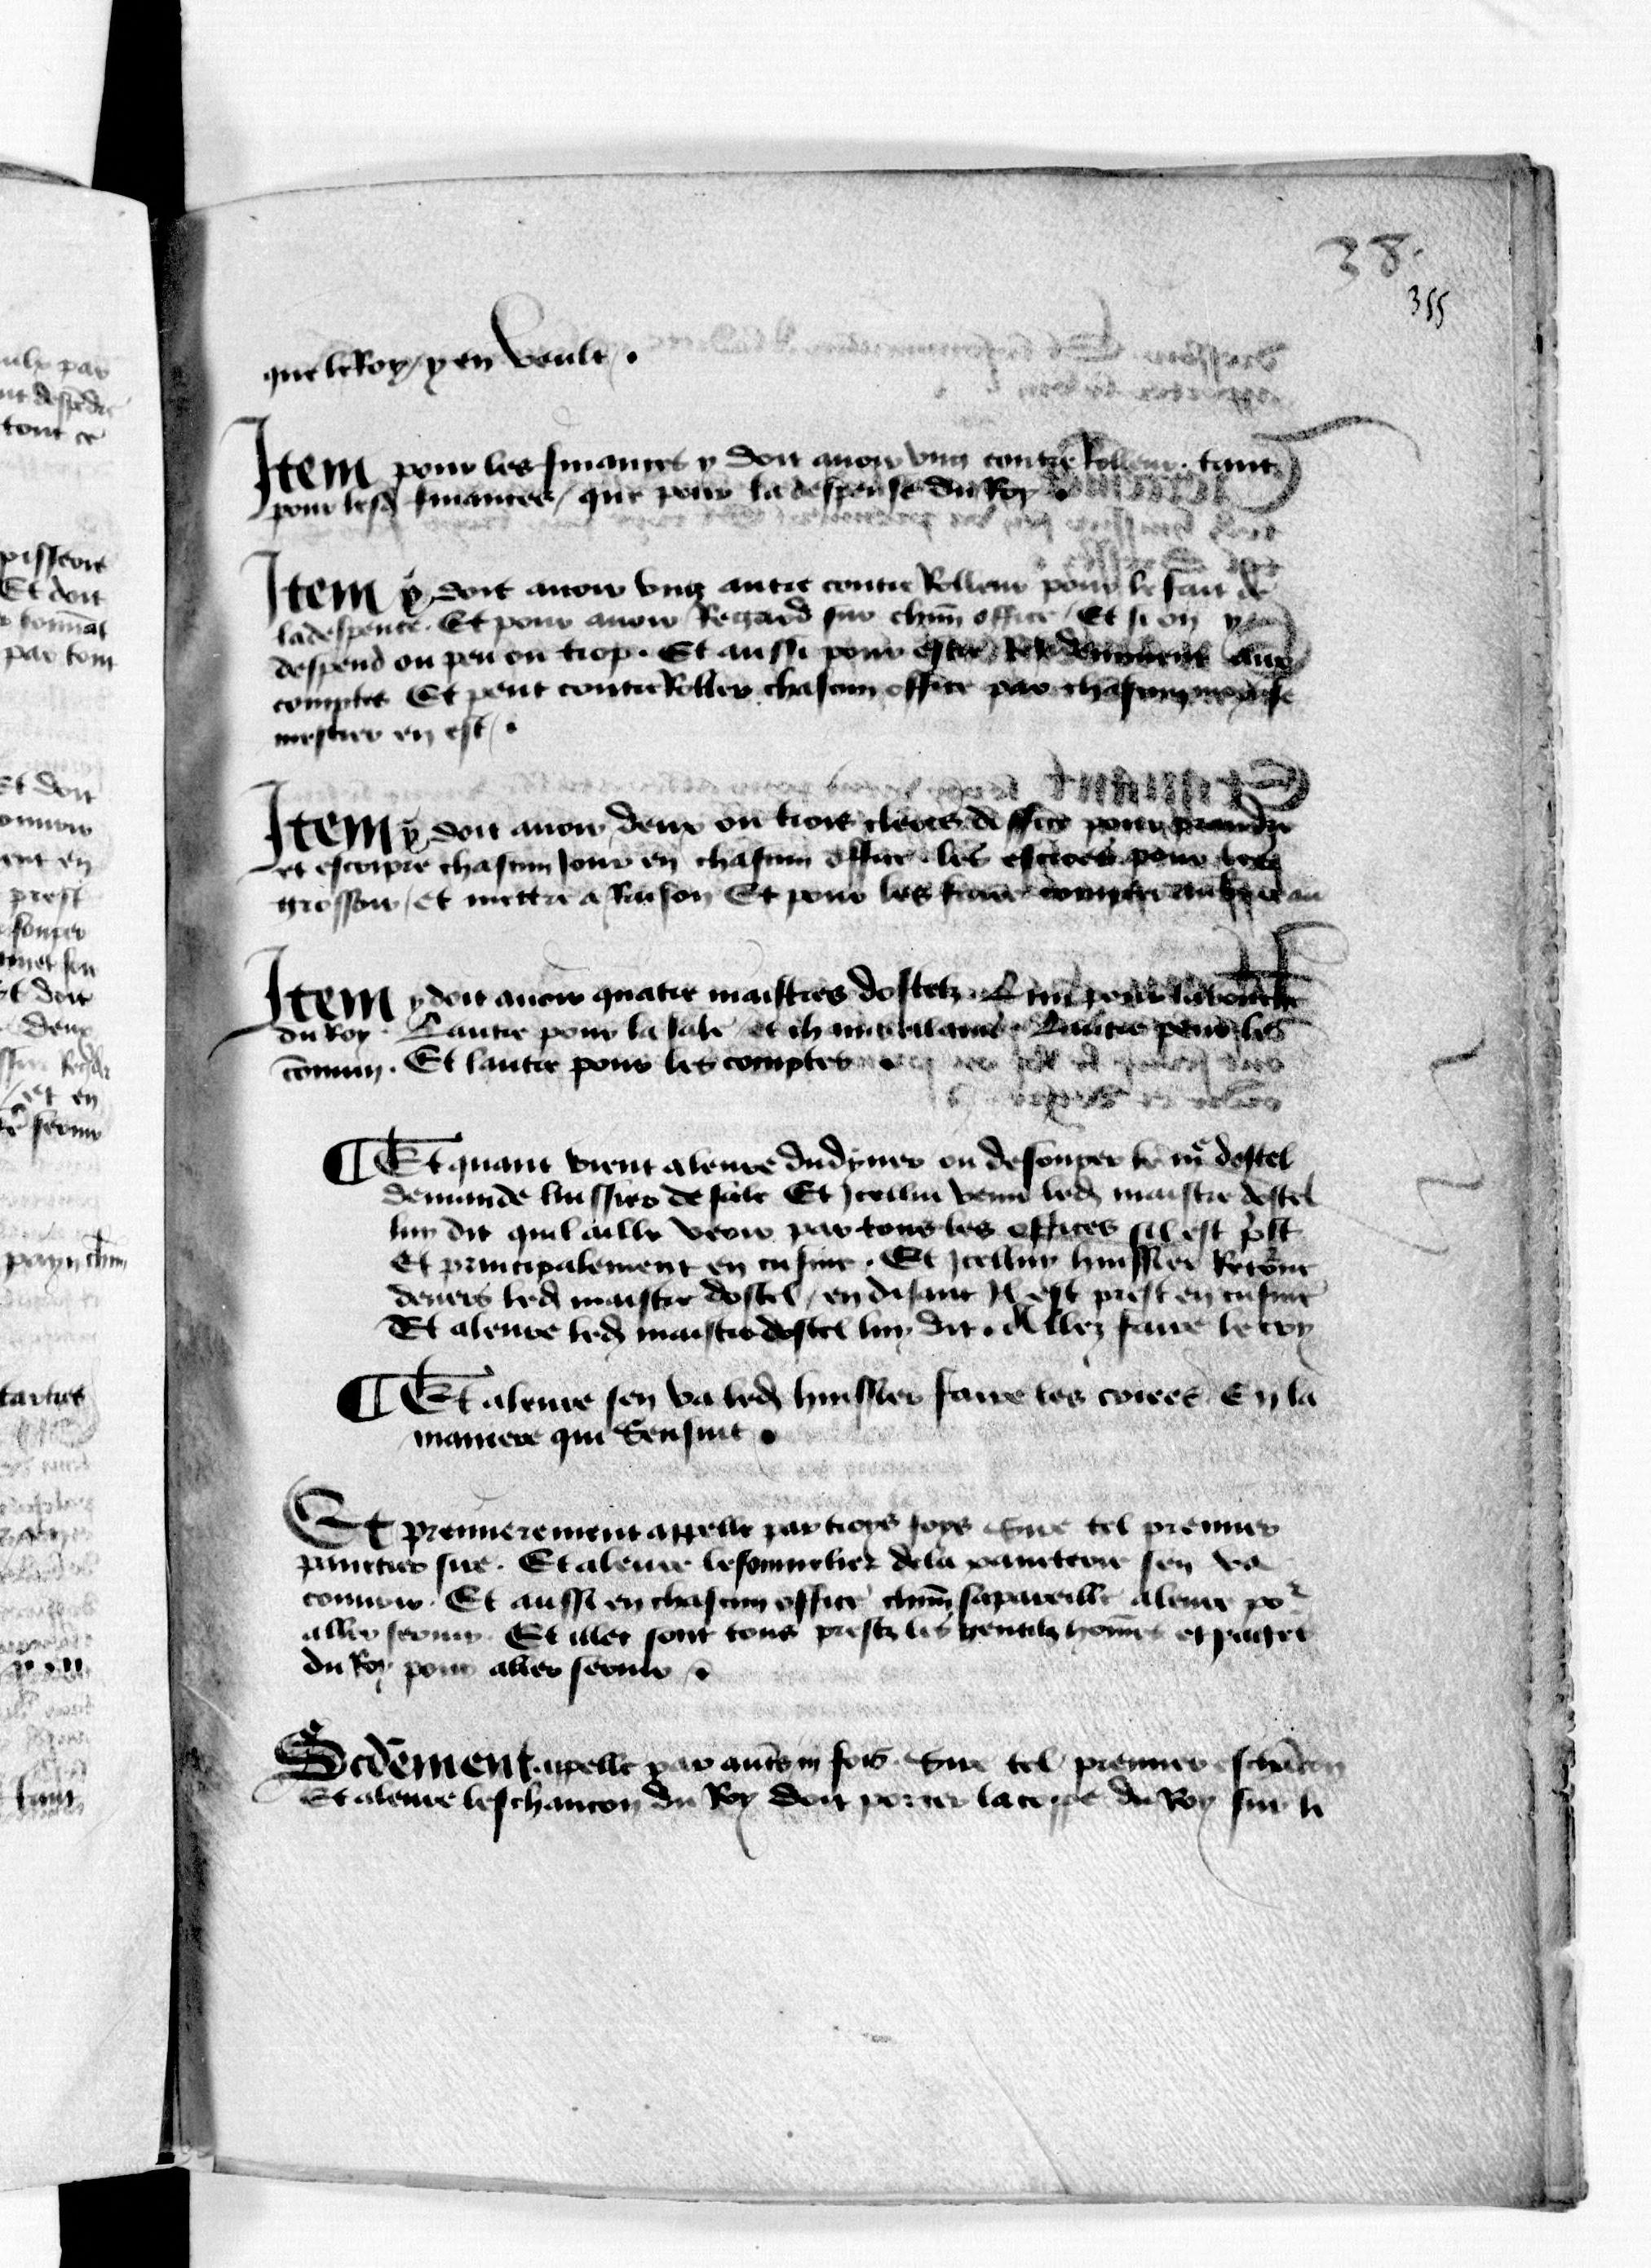 38.
355
que le Roy y en veult .
Item pour les finances y doit auoir vng contre Rolleur . tant
pour lesd finances / que pour la despense du Roy .
Item y doit auoir vng autre contre Rolleur pour le fait de
la despence . Et pour auoir Regard sur chun office / Et si on y
despend ou peu ou trop . Et aussi pour estre aux
comptes Et peut contreRoller chascun office par chascun se
mestier en est / .
Item y doit auoir deux ou trois clercs doffice pour prandre
et escripre chascun Jour en chascun office les escroes pour les
grossoier / et mettre a Raison Et pour les faire au
Item y doit auoir quatre maistres dostelz . Lun pour la bouche
du Roy . Lautre pour la sale / et chamberlans . Lautre pour les
comun . Et lautre pour les comptes .
¶ Et quant vient aleure du dyner ou de souper le me dostel
demande luissier de sale Et Jcellui venu led maistre dostel
luy dit quil aille veoir par tous les offices sil est prest
Et principalement en cuisine . Et Jcelluy huissier Retourne
deuers led maistre dostel / en disant Il est prest en cuisine
Et aleure led maistre dostel luy dit . Allez faire le cry
¶ Et aleure sen va led huissier faire les criees En la
maniere qui Sensuit .
Et premierement appelle par troys foys Sire tel premier
panetier sire . Et aleure le sommelier de la paneterie sen va
couurir . Et aussi en chascun office chun sapareille aleure por
aller seruir . Et illec sont tous prestz les gentilz homes et pages
du Roy pour aller seruir .
Scdement apelle par autres iij fois . Sire tel premier eschancon
Et aleure leschancon du Roy doit porter la coppe du Roy sur le